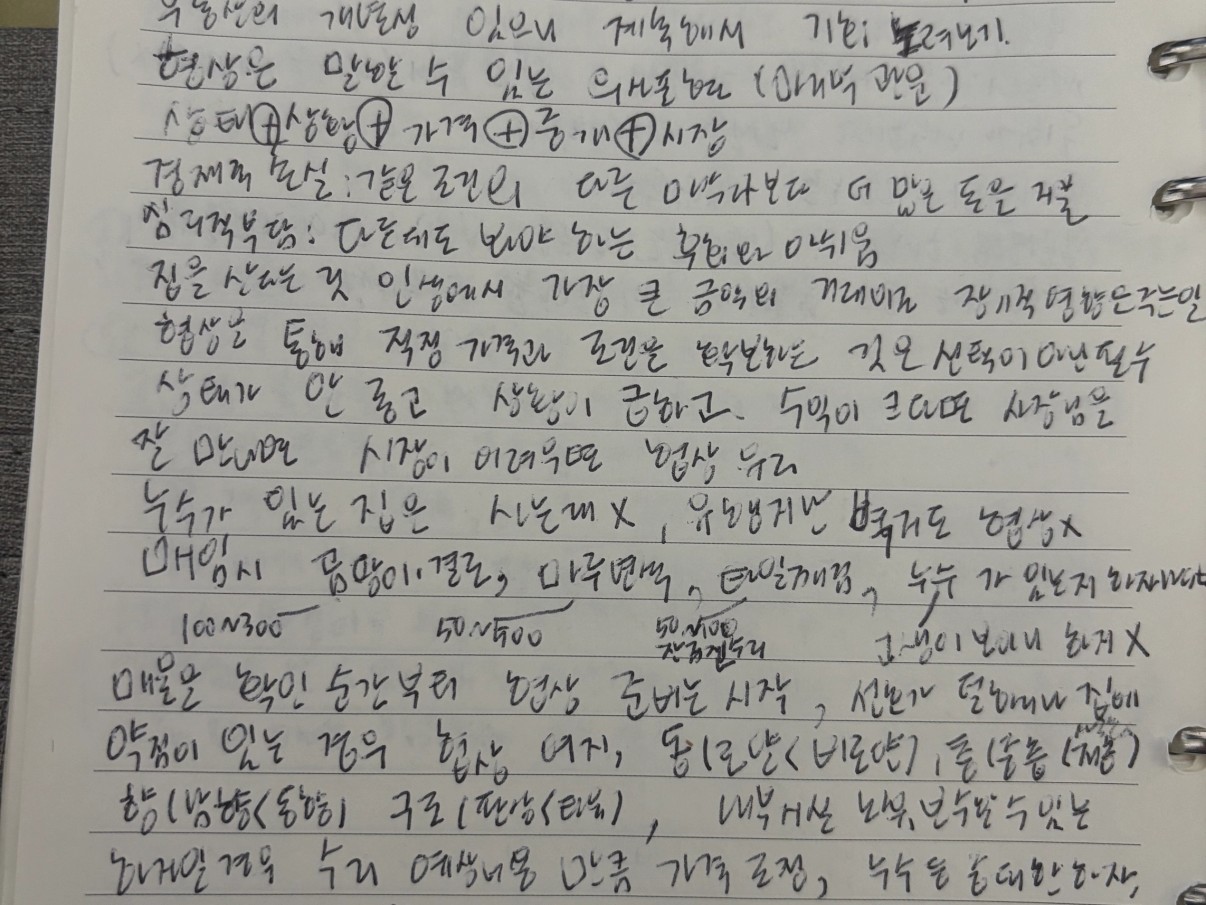 부동산의 개별성 있으니 계속해서 기회 노려보기.
협상은 말할 수 있는 의사표현
상태⊕상황⊕가격⊕중개⊕시장
경제적 손실: 같은 조건의 다른 매수자보다 더 많은 돈을 지불
심리적부담: 다른데도 봐야 하는 후회와 아쉬움
집을 산다는 것 인생에서 가장 큰 금액의 거래이고 장기적 영향을 주는일
협상을 통해 적정 가격과 조건을 확보하는 것은 선택이 아닌 필수
상태가 안 좋고 상황이 급하고. 수익이 크다면 사장님을
잘 만나면 시장이 어려우면 협상 유리
누수가 있는 집은 사는데 X, 유행지난 벽지도 협상X
매임시 곰팡이·결로, 마루변색, 타일깨짐, 누수 가 있는지
100~300 50~500 50~100 고생이 보이니 하지 X
수리
매물을 확인 순간부터 협상 준비는 시작, 선호가 덜하거나 집에
약점이 있는 경우 협상 여지, 동(로얄<비로얄), 층(중층
향(남향<동향) 구조(판상<타워), 내부시설 노후, 보수할 수 있는
하자일경우 수리 예상비용 만큼 가격 조정, 누수는 중대한 하자,